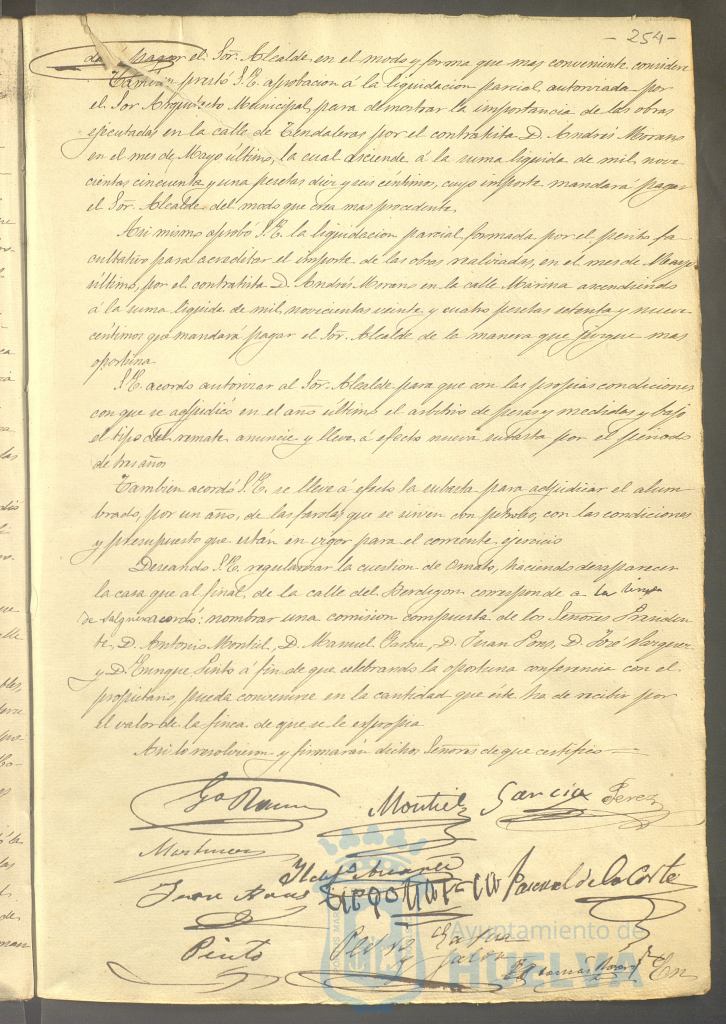 - 254 -
pagar el Sor. Alcalde en el modo y forma que mas conveniente considere
Tambien prestó S.E. aprobacion á la liquidacion parcial autorizada por
el Sor Arquitecto Municipal para demostrar la importancia de las obras
ejecutadas en la calle de Tendaleras por el contratista D. Andrés Morano
en el mes de Mayo último, la cual asciende á la suma líquida de mil nove-
cientas cincuenta y una pesetas diez y seis céntimos, cuyo importe mandará pagar
el Sor. Alcalde del modo que crea mas procedente.
Asi mismo aprobó S.E. la liquidacion parcial formada por el perito fa-
cultativo para acreditar el importe de las obras realizadas, en el mes de Mayo
último, por el contratista D. Andrés Morano en la calle Marina ascendiendo
á la suma líquida de mil novecientas veinte y cuatro pesetas setenta y nueve
centimos que mandará pagar el Sor. Alcalde de la manera que juzgue mas
oportuna
S.E. acordó autorizar al Sor. Alcalde para que con las propias condiciones
con que se adjudicó en el año último el arbitrio de pesas y medidas y bajo
el tipo del remate anuncie y lleve á efecto nueva subasta por el periodo
de tres años
Tambien acordó S.E. se lleve á efecto la subasta para adjudicar el alum-
brado, por un año, de las farolas que se sirven con petroleo, con las condiciones
y presupuesto que están en vigor para el corriente ejercicio
Deseando S.E. regularizar la cuestion de Ornato, haciendo desaparecer
la casa que al final de la calle del Berdigon corresponde a la
de acordó: nombrar una comision compuesta de los Señores Presiden-
te, D. Antonio Montiel, D. Manuel D. Juan Pons, D. José Vazquez
y D. Enrique Pinto á fin de que celebrando la oportuna conferencia con el
propietario, pueda convenirse en la cantidad que éste ha de recibir por
el valor de la finca de que se le expropia
Asi lo resolvieron y firmarán dichos Señores de que certifico
Montiel Garcia Perez
Martinez
Juan Pascual de la Corte
Pinto
Ayuntamiento de
HUELVA